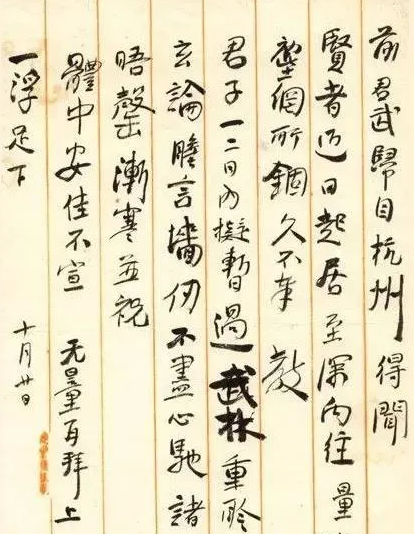 前君武歸自杭州得聞
賢者近日起居至深向往量
所錮久不奉 教
君子一二日內擬暫過武林重聆
玄論瞻言墻仞不盡心馳諸
晤罄漸寒並祝
體中安佳不宣 无量再拜上
一浮足下 十月廿日